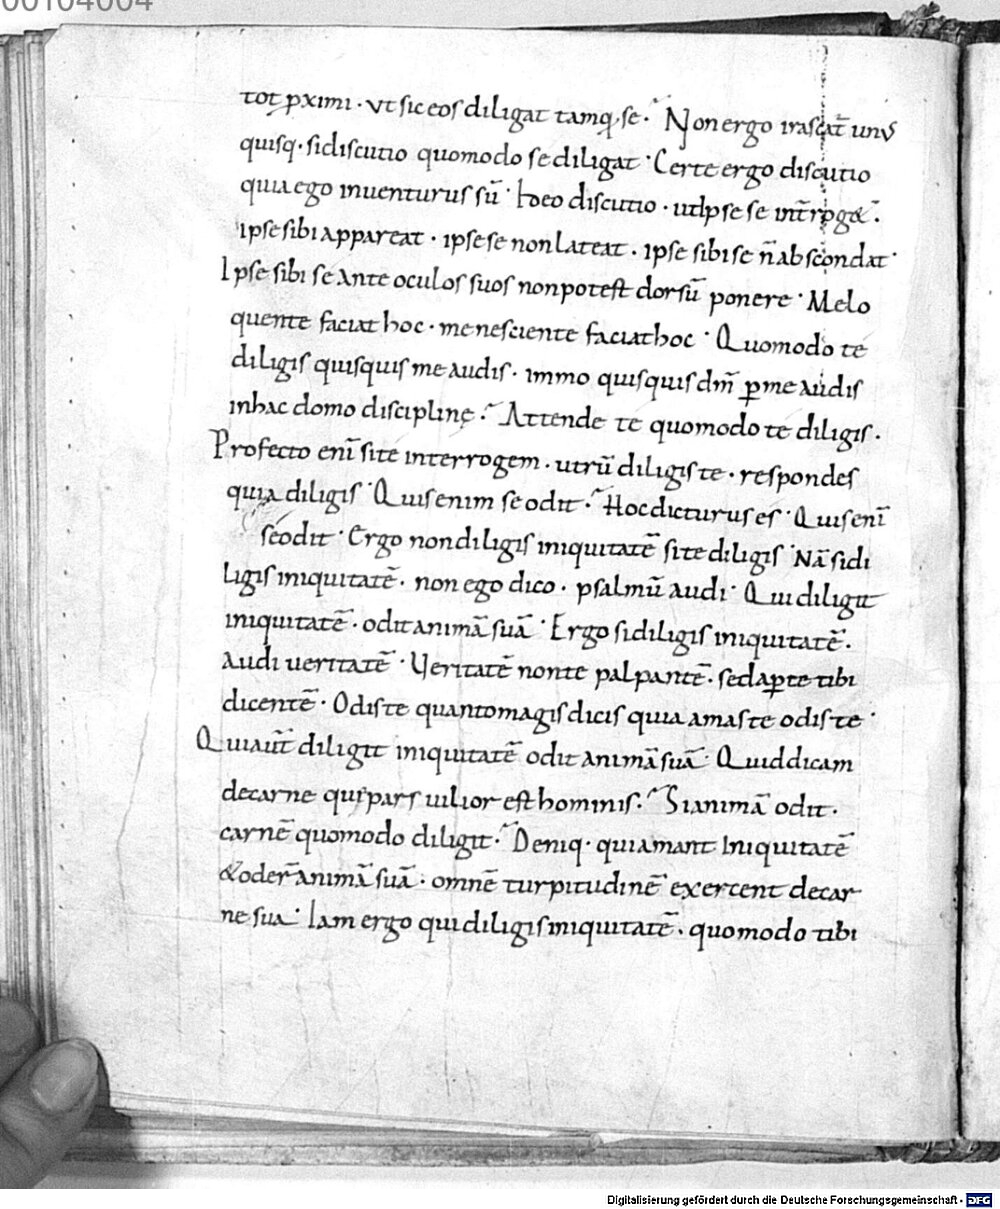 00104004
tot p̱ximi · vt sic eos diligat tamq̱ · se · Non ergo irascat̄ unus
quisq · si discutio quomodo se diligat · Certe ergo discutio
quia ego inuenturus sū · Ideo discutio · ut Ipse se int̄rog& ·
ipse sibi appareat · ipse se non lateat · ipse sibi se n̄ abscondat ·
Ipse sibi se Ante oculos suos non potest dorsū ponere · Me lo
quente faciat hoc · me nesciente faciat hoc · Quomodo te
diligis quisquis me audis · immo quisquis dm̄ ꝑ me audis
in hac domo disciplinę · Attende te quomodo te diligis ·
Profecto enī si te interrogem · utrū diligis te · respondes
quia diligis · Quis enim se odit · Hoc dicturus es · Quis enī
se odit · Ergo non diligis iniquitatē si te diligis · Nā si di
ligis iniquitatē · non ego dico · psalmū audi · Qui diligit
iniquitatē · odit animā suā · Ergo si diligis iniquitatē ·
audi ueritatē · Ueritatē non te palpantē · sed aꝑte tibi
dicentē · Odis te quanto magis dicis quia amas te odis te ·
Qui aūt diligit iniquitatē odit animā suā · Quid dicam
de carne quę pars uilior est hominis · Si animā odit ·
carnē quomodo diligit · Deniq · qui amant Iniquitatē
& oder̄ animā suā · omnē turpitudinē exercent de car
ne sua · Iam ergo qui diligis iniquitatē · quomodo tibi
Digitalisierung gefördert durch die Deutsche Forschungsgemeinschaft - DFG